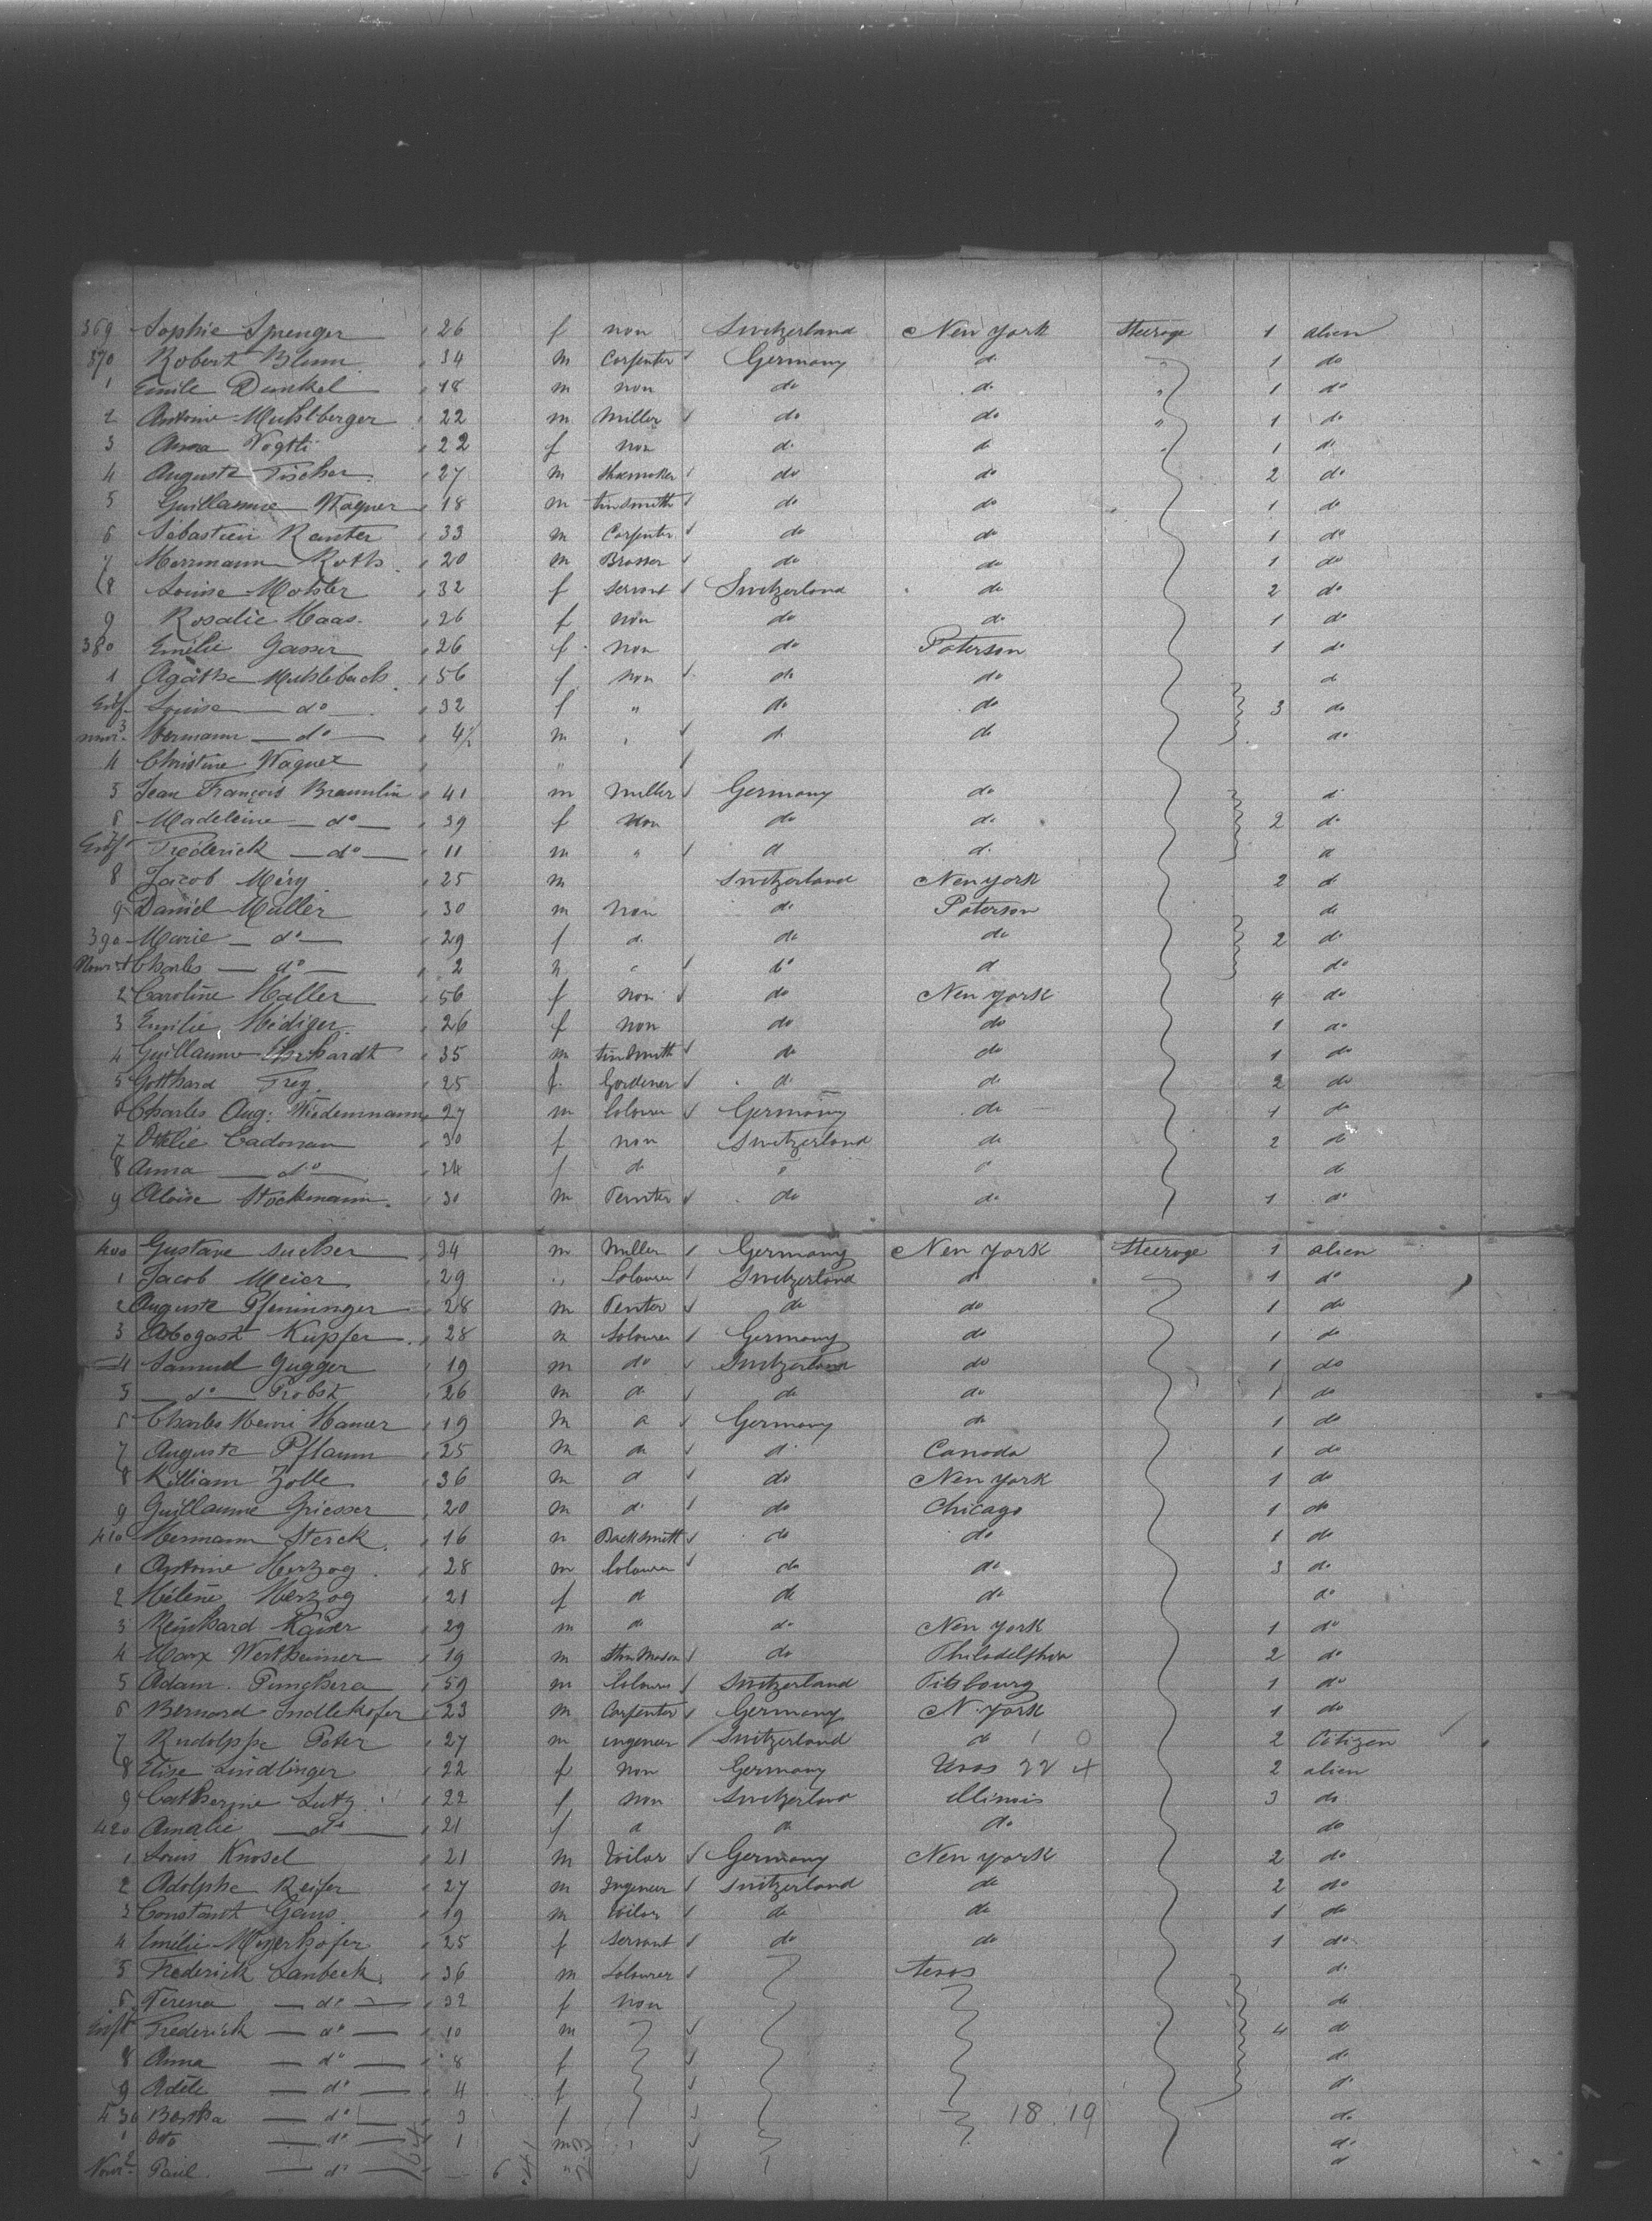 369 Sophie Sprenger 26 f non Switzerland New York Steerage 1 alien
370 Robert Blum 34 m Carpenter Germany d° 1 do
1 Emile Dunkel 18 m non do do 1 do
2 Antoine Muhlberger 22 m Miller do do 1 do
3 Anna Vogtli 22 f non do do 1 do
4 Auguste Fischer 27 m Shoemaker do do 2 do
5 Guillaume Wagner 18 m tinsmith do do 1 do
6 Sébastien Kanter 33 m Carpenter do do 1 do
7 Herrmann Roth 20 m Brasser do do 1 do
8 Louise Motster 32 f servant Switzerland do 2 do
9 Rosalie Haas 26 f non do do 1 do
380 Emélie Gasser 26 f non do Paterson 1 do
1 Agathe Muhlebach 56 f non do do do
Louise do 32 f " do do 3 do
3 Hermann do 4½ m do do do
4 Christine Wagner "
5 Jean François Braunlin 41 m miller Germany do do
6 Madeleine do 39 f non do do 2 do
Frederick do 11 m " do do do
8 Jacob Méry 25 m Switzerland New york 2 do
9 Daniel Maller 30 m non do Paterson do
390 Marie do 29 f do do do 2 do
Charles do 2 do do do
2 Caroline Haller 56 f non do New york 4 do
3 Emilie Hédiger 26 f non do do 1 do
4 Guillaume Ehrhardt 35 m tinsmith do do 1 do
5 Gotthard Frey 25 f Gardener do do 2 do
6 Charles Aug: Wiedenmann 27 m Labourer Germany do 1 do
7 Ottilie Cadonau 30 f non Switzerland do 2 do
8 Anna do 24 f do do do
9 Aloise Stockmann 30 m Penter do do 1 do
400 Gustave sucher 34 m Miller Germany New York Steerage 1 alien
1 Jacob Meier 29 Labourer Switzerland do 1 do
2 Auguste Pfenninger 28 m Penter do do 1 do
3 Abogast Kupfer 28 m Labourer Germany do 1 do
4 Samuel Gugger 19 m do Switzerland do 1 do
5 do Probst 26 m do do do 1 do
6 Charles Henri Hamer 19 m do Germany do 1 do
7 Auguste Pflaum 25 m do do Canada 1 do
8 Killiam Zolle 36 m do do New York 1 do
9 Guillaume Griesser 20 m do do Chicago 1 do
410 Hermann Sterck 16 m Backsmith do do 1 do
1 Antoine Herzog 28 m Labourer do do 3 do
2 Hélène Herzog 21 f do do do do
3 Reinhard Kaiser 29 m do do New York 1 do
4 Marx Wertheimer 19 m do Philadelphia 2 do
5 Adam Punchera 59 m Labourer Switzerland Pitsbourg 1 do
6 Bernard Indlekofer 23 m Carpenter Germany N. York 1 do
7 Rudolphe Peter 27 m ingeneer Switzerland do 2 Citizen
8 Elise Lindlinger 22 f non Germany 22 2 alien
9 Catherine Lutz 22 f non Switzerland Illinois 3 do
420 Amalie do 21 f do do do do
1 Louis Knosel 21 m Tailor Germany New york 2 do
2 Adolphe Keifer 27 m Ingeneer Switzerland do 2 do
3 Constant Gans 19 m tailor do do 1 do
4 Emélie Meyerhofer 25 f Servant do do 1 do
5 Frederick Lanbeck 36 m Labourer texas do
6 Verena do 32 f non do
Frederick do 10 m 4 do
8 Anna do 8 f do
9 Adèle do 4 f do
430 Bertha do 3 f 18.19 do
1 Otto do 1 m do
2 Paul do do